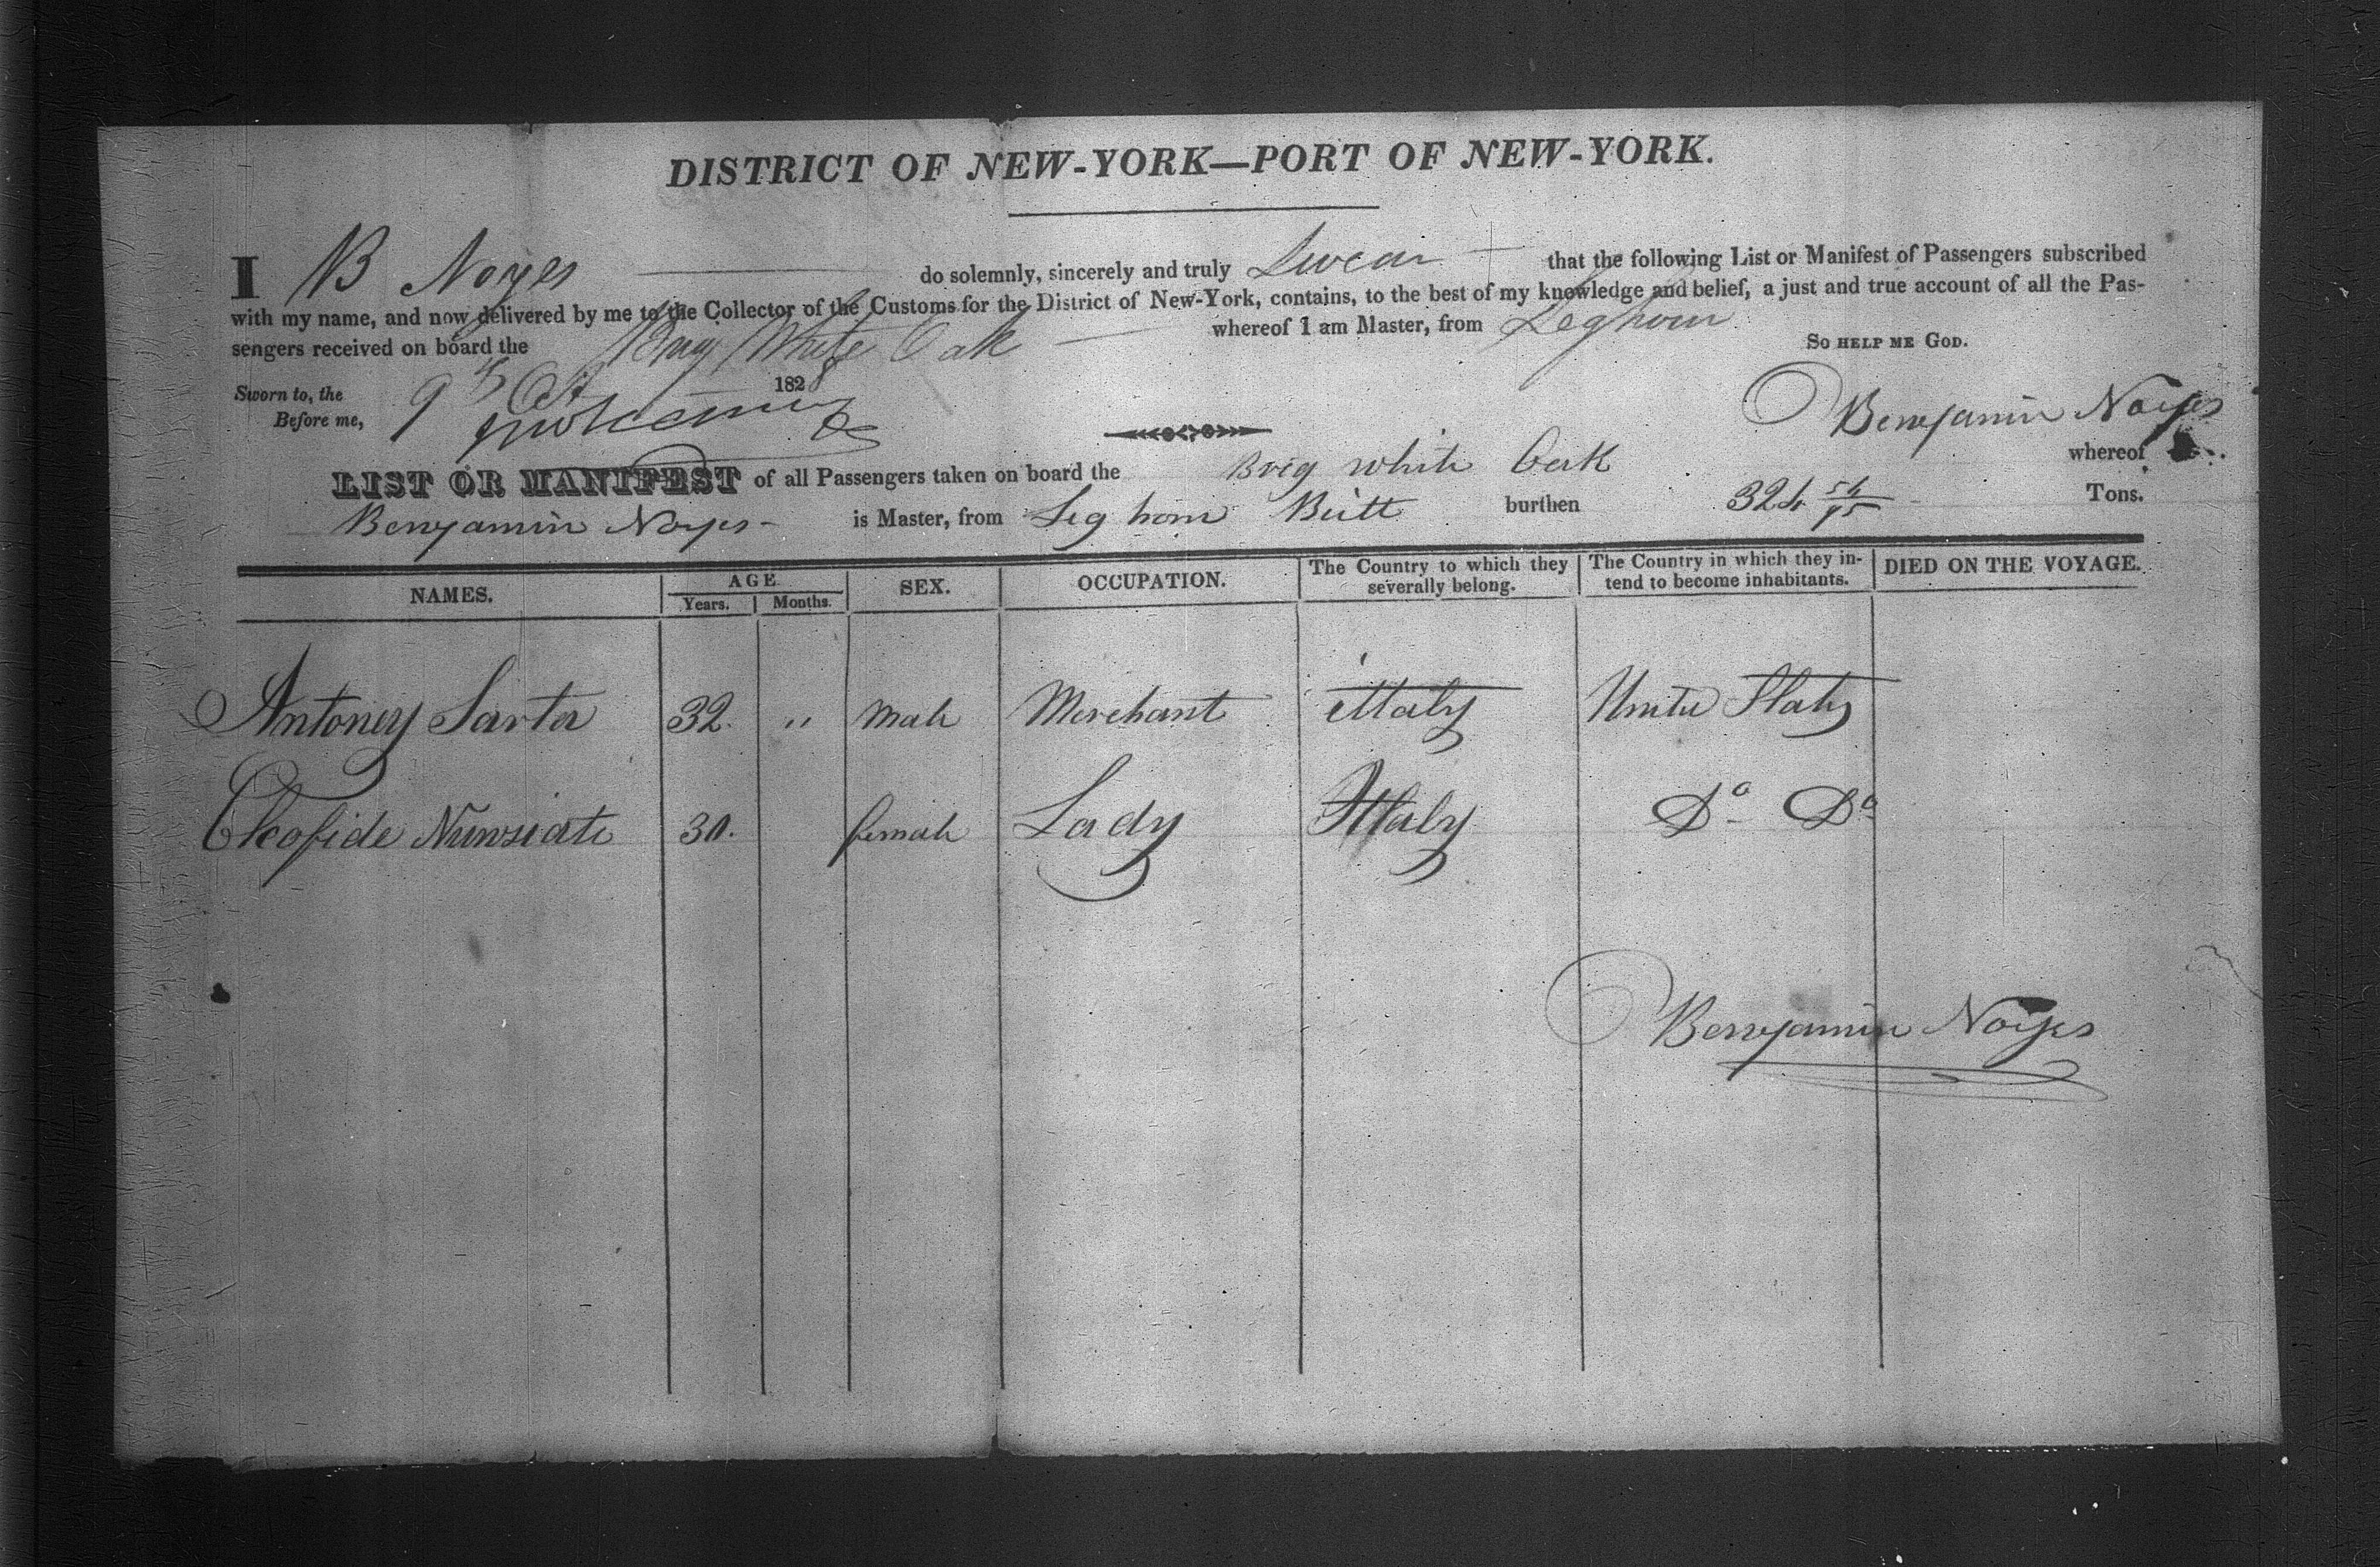 DISTRICT OF NEW-YORK—PORT OF NEW-YORK.
I B Noyes do solemnly, sincerely and truly Swear that the following List or Manifest of Passengers subscribed
with my name, and now delivered by me to the Collector of the Customs for the District of New-York, contains, to the best of my knowledge and belief, a just and true account of all the Pas-
sengers received on board the Brig White Oak whereof I am Master, from Leghorn
So help me God.
Sworn to, the 9th Oct 1828
Before me,
Benjamin Noyes
LIST OR MANIFEST of all Passengers taken on board the Brig white Oak whereof
Benjamin Noyes is Master, from Leg horn burthen 324 54/95 Tons.
NAMES. AGE Years. Months. SEX. OCCUPATION. The Country to which they severally belong. The Country in which they in- tend to become inhabitants. DIED ON THE VOYAGE.
Antoney Sarta 32. " male Merchant ittaly Unite Staty
Cleofide Nunsiati 30. female Lady Ittaly Do Do
Benjamin Noyes